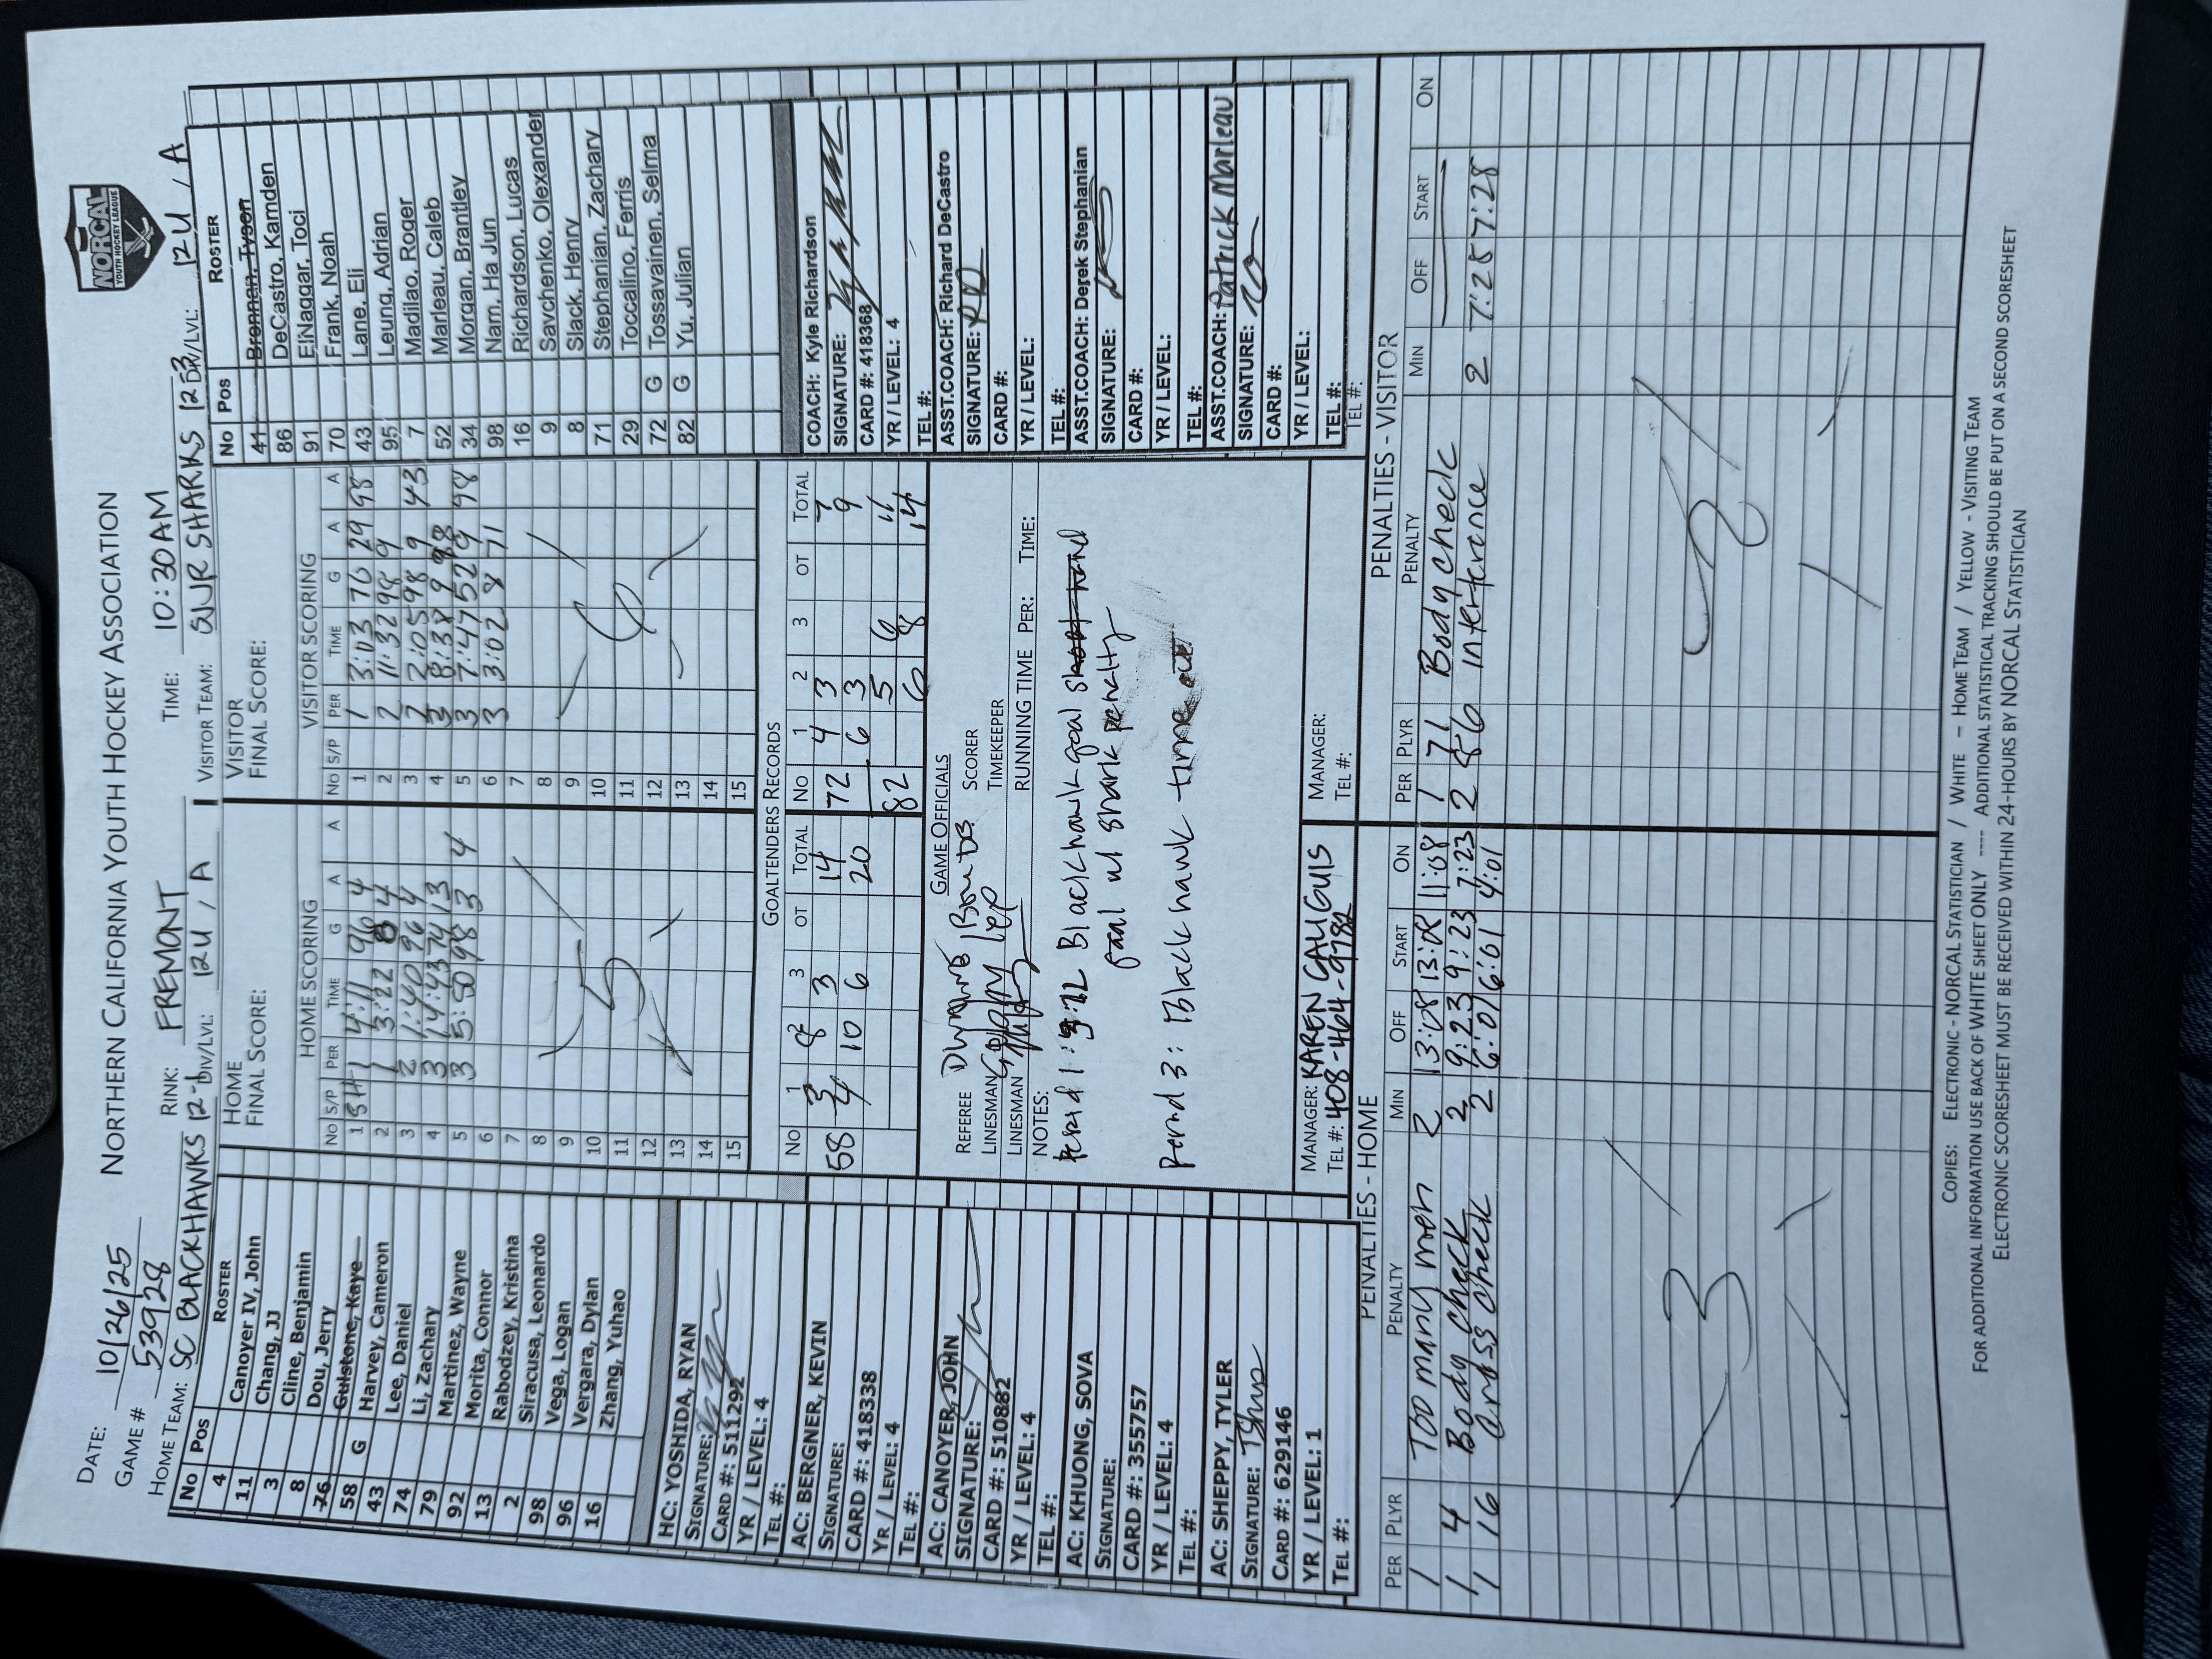 NORCAL
YOUTH HOCKEY LEAGUE
NORTHERN CALIFORNIA YOUTH HOCKEY ASSOCIATION
DATE: 10/26/25
GAME # 53928
RINK: FREMONT
TIME: 10:30AM
HOME TEAM: SC BLACKHAWKS 12-3
DIV/LVL: 12U / A
VISITOR TEAM: SVJR SHARKS 12-3
DIV/LVL: 12U / A
No Pos ROSTER
4 Canoyer IV, John
11 Chang, JJ
3 Cline, Benjamin
8 Dou, Jerry
76 Gulstone, Kaye
58 G Harvey, Cameron
43 Lee, Daniel
74 Li, Zachary
79 Martinez, Wayne
92 Morita, Connor
13 Rabodzey, Kristina
2 Siracusa, Leonardo
98 Vega, Logan
96 Vergara, Dylan
16 Zhang, Yuhao
HC: YOSHIDA, RYAN
SIGNATURE:
CARD #: 511292
YR / LEVEL: 4
TEL #:
AC: BERGNER, KEVIN
SIGNATURE:
CARD #: 418338
YR / LEVEL: 4
TEL #:
AC: CANOYER, JOHN
SIGNATURE:
CARD #: 510882
YR / LEVEL: 4
TEL #:
AC: KHUONG, SOVA
SIGNATURE:
CARD #: 355757
YR / LEVEL: 4
TEL #:
AC: SHEPPY, TYLER
SIGNATURE:
CARD #: 629146
YR / LEVEL: 1
TEL #:
HOME
FINAL SCORE:
HOME SCORING
No S/P PER TIME G A A
1 SH 1 4:11 96 4
2 1 3:22 8 4
3 2 1:40 96 4
4 3 14:43 74 13
5 3 5:50 98 3 4
6
7
8
9
10
11
12
13
14
15
5
VISITOR
FINAL SCORE:
VISITOR SCORING
No S/P PER TIME G A A
1 1 3:03 70 29 95
2 2 11:32 98 9
3 2 2:05 98 9 43
4 3 8:38 9 98
5 3 7:47 52 9 98
6 3 3:02 8 71
7
8
9
10
11
12
13
14
15
6
GOALTENDERS RECORDS
No 1 2 3 OT TOTAL
58 3 8 3 14
4 10 6 20
No 1 2 3 OT TOTAL
72 4 3 7
6 3 9
82 5 6 11
6 8 14
GAME OFFICIALS
REFEREE
SCORER
LINESMAN
TIMEKEEPER
LINESMAN
RUNNING TIME PER: TIME:
NOTES:
Period 1: Blackhawk goal
w/ shark penalty
Period 3: Blackhawk time out
MANAGER: KAREN CALIGUIS
TEL #: 408-464-9782
MANAGER:
TEL #:
No Pos ROSTER
41 Brennan, Tyson
86 DeCastro, Kamden
91 ElNaggar, Toci
70 Frank, Noah
43 Lane, Eli
95 Leung, Adrian
7 Madilao, Roger
52 Marleau, Caleb
34 Morgan, Brantley
98 Nam, Ha Jun
16 Richardson, Lucas
9 Savchenko, Olexander
8 Slack, Henry
71 Stephanian, Zachary
29 Toccalino, Ferris
72 G Tossavainen, Selma
82 G Yu, Julian
COACH: Kyle Richardson
SIGNATURE:
CARD #: 418368
YR / LEVEL: 4
TEL #:
ASST.COACH: Richard DeCastro
SIGNATURE: RD
CARD #:
YR / LEVEL:
TEL #:
ASST.COACH: Derek Stephanian
SIGNATURE:
CARD #:
YR / LEVEL:
TEL #:
ASST.COACH: Patrick Marleau
SIGNATURE:
CARD #:
YR / LEVEL:
TEL #:
TEL #:
PENALTIES - HOME
PER PLYR PENALTY MIN OFF START ON
1 Too many men 2 13:08 13:08 11:08
1 4 Body check 2 9:23 9:23 7:23
1 16 cross check 2 6:01 6:01 4:01
3
PENALTIES - VISITOR
PER PLYR PENALTY MIN OFF START ON
1 71 Body check
2 86 interference 2 7:25 7:28
2
COPIES: ELECTRONIC - NORCAL STATISTICIAN / WHITE – HOME TEAM / YELLOW - VISITING TEAM
FOR ADDITIONAL INFORMATION USE BACK OF WHITE SHEET ONLY ---- ADDITIONAL STATISTICAL TRACKING SHOULD BE PUT ON A SECOND SCORESHEET
ELECTRONIC SCORESHEET MUST BE RECEIVED WITHIN 24-HOURS BY NORCAL STATISTICIAN